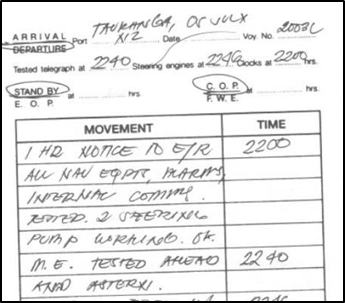 ARRIVAL
DEPARTURE Port TAURANGA, NZ Date Voy. No. 2003L
Tested telegraph at 2240 Steering engines at 2246 Clocks at 2200 hrs.
STAND BY at hrs. C. O. P. at hrs
E. O. P. F. W. E.
MOVEMENT TIME
1 HR NOTICE TO E/R 2200
ALL NAV EQPTS, ALARMS,
INTERNAL COMMS.
TESTED. 2 STEERING
PUMP WORKING. OK.
M.E. TESTED AHEAD 2240
AND ASTERN.